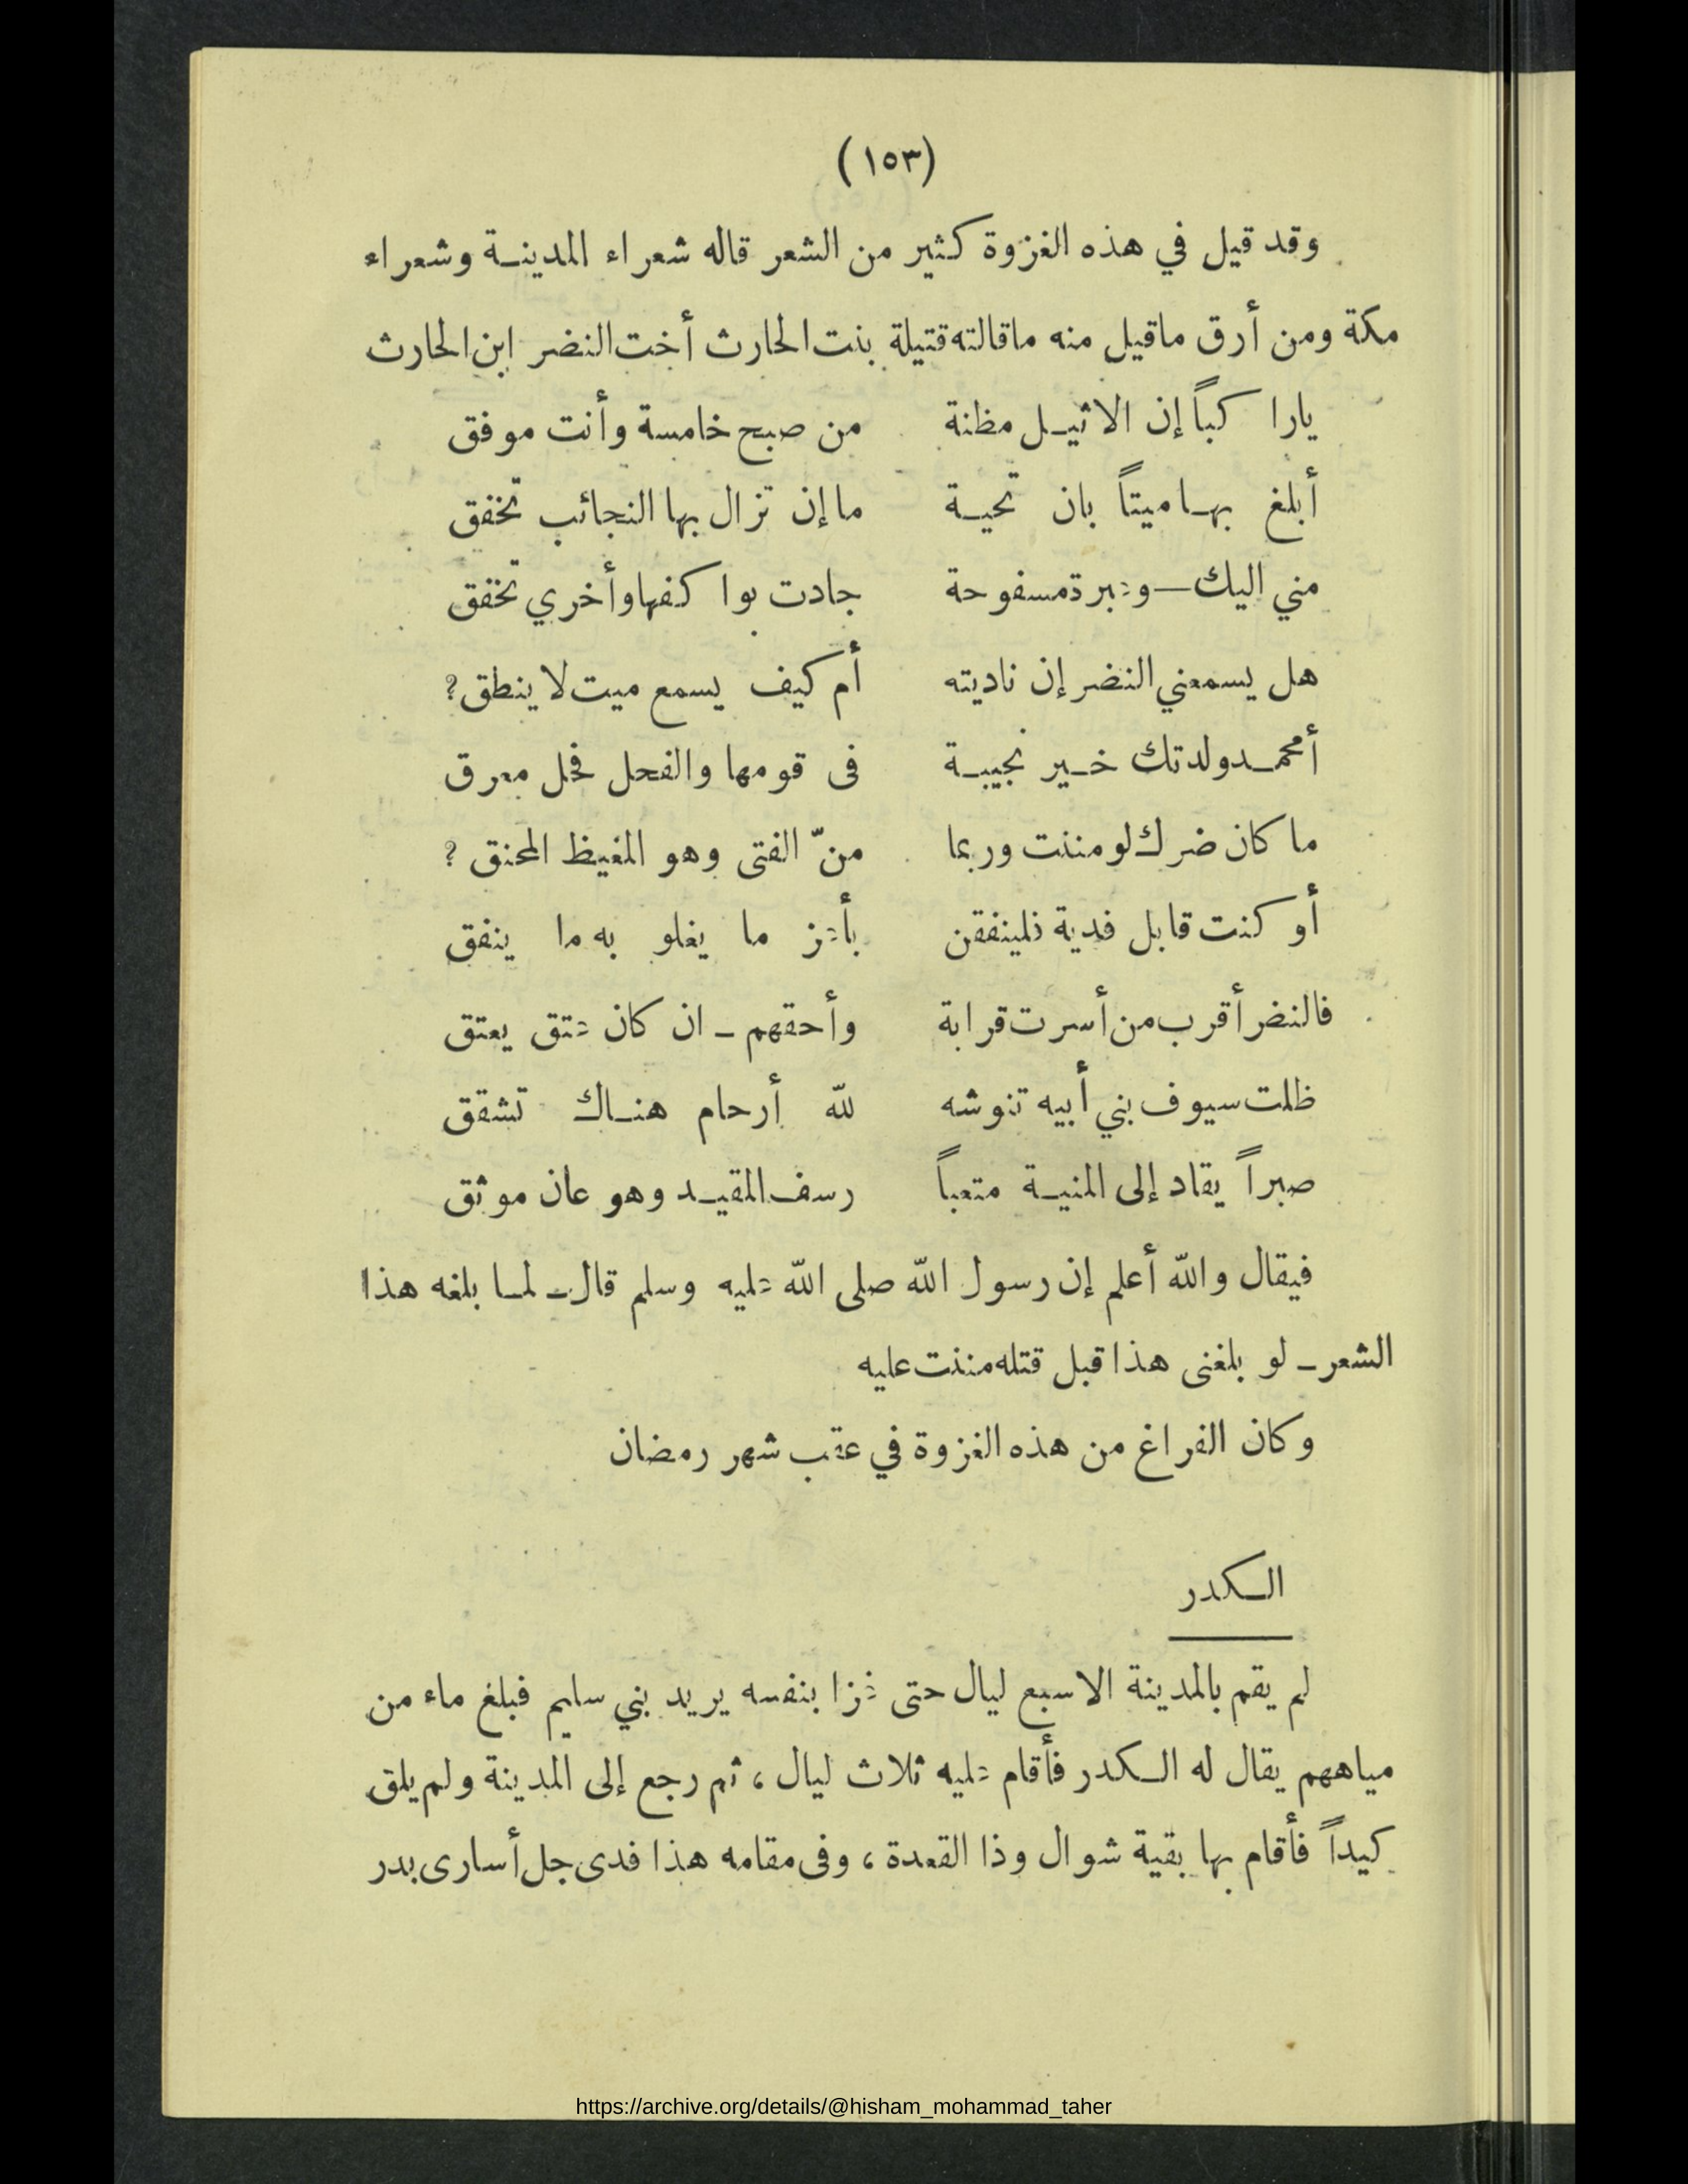 (١٥٣)
وقد قيل في هذه الغزوة كثير من الشعر قاله شعراء المدينة وشعراء
مكة ومن أرق ماقيل منه ماقالته قتيلة بنت الحارث أخت النضر ابن الحارث
يارا كباً إن الاثيل مظنة من صبح خامسة وأنت موفق
أبلغ بها ميتاً بان تحية ما إن تزال بها النجائب تخفق
مني اليك — وعبرة مسفوحة جادت بوا كفها وأخري تخفق
هل يسمعني النضر إن ناديته أم كيف يسمع ميت لا ينطق؟
أمحمد ولدتك خير نجيبة فى قومها والفحل فحل معرق
ما كان ضرك لو مننت وربما منّ الفتى وهو المغيظ المحنق ؟
أو كنت قابل فدية فلينفقن بأعز ما يغلو به ما ينفق
فالنضر أقرب من أسرت قرابة وأحقهم - ان كان عتق يعتق
ظلت سيوف بني أبيه تنوشه لله أرحام هناك تشقق
صبراً يقاد إلى المنية متعباً رسف المقيد وهو عان موثق
فيقال والله أعلم إن رسول الله صلى الله عليه وسلم قال - لما بلغه هذا
الشعر - لو بلغنى هذا قبل قتله مننت عليه
وكان الفراغ من هذه الغزوة في عقب شهر رمضان
الكدر
لم يقم بالمدينة الا سبع ليال حتى غزا بنفسه يريد بني سليم فبلغ ماء من
مياههم يقال له الكدر فأقام عليه ثلاث ليال ، ثم رجع إلى المدينة ولم يلق
كيداً فأقام بها بقية شوال وذا القعدة ، وفى مقامه هذا فدى جل أسارى بدر
https://archive.org/details/@hisham_mohammad_taher